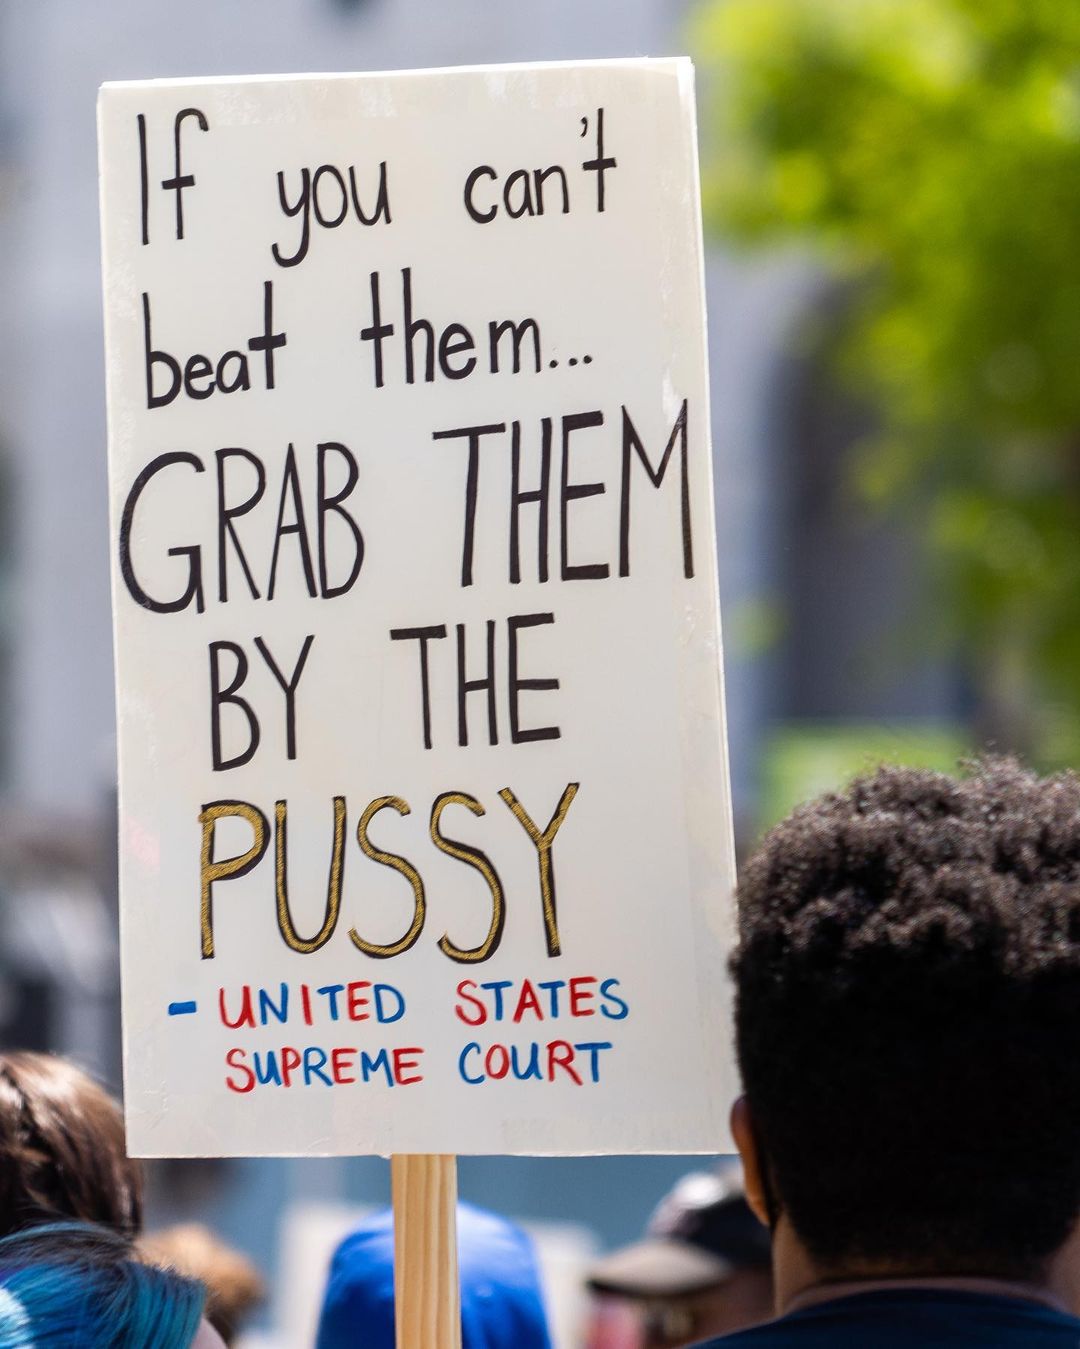 If you can't
beat them...
GRAB THEM
BY THE
PUSSY
- UNITED STATES
SUPREME COURT